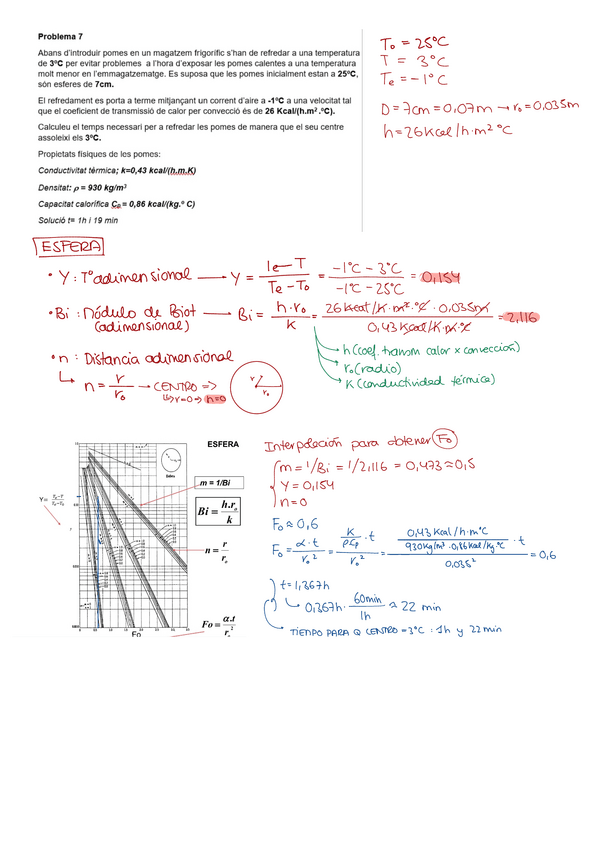 Problema 7
Abans d'introduir pomes en un magatzem frigorífic s'han de refredar a una temperatura
de 3ºC per evitar problemes a l'hora d'exposar les pomes calentes a una temperatura
molt menor en l'emmagatzematge. Es suposa que les pomes inicialment estan a 25ºC,
són esferes de 7cm.
El refredament es porta a terme mitjançant un corrent d'aire a -1ºC a una velocitat tal
que el coeficient de transmissió de calor per convecció és de 26 Kcal/(h.m².ºC).
Calculeu el temps necessari per a refredar les pomes de manera que el seu centre
assoleixi els 3ºC.
Propietats físiques de les pomes:
Conductivitat tèrmica; k=0,43 kcal/(h.m.K)
Densitat: ρ = 930 kg/m³
Capacitat calorífica Cp = 0,86 kcal/(kg.º C)
Solució t= 1h i 19 min
To = 25ºC
T = 3ºC
Te = -1ºC
D = 7cm = 0,07m → ro = 0,035m
h = 26Kcal/h·m²ºC
ESFERA
• Y: Tª adimensional → Y = Te - T / Te - To = -1ºC - 3ºC / -1ºC - 25ºC = 0,154
• Bi: Módulo de Biot (adimensional) → Bi = h·ro / K = 26 Kcal/h·m²·ºC · 0,035m / 0,43 Kcal/h·m·ºC = 2,116
h (coef. transm calor x convección)
ro (radio)
K (conductividad térmica)
• n: Distancia adimensional
n = r / ro → CENTRO => r=0 ⇒ n=0
r
ro
ESFERA
m = 1/Bi
Bi = h.ro / k
n = r / ro
Fo = α.t / ro²
Y = Te - T / Te - To
Esfera
Fo
Interpolación para obtener Fo
m = 1/Bi = 1/2,116 = 0,473 ≈ 0,5
Y = 0,154
n = 0
Fo ≈ 0,6
Fo = α·t / ro² = K / ρCp · t / ro² = 0,43 Kcal/h·m·ºC / 930Kg/m³ · 0,86 Kcal/Kg·ºC · t / 0,035² = 0,6
t = 1,367h
0,367h · 60min / 1h ≈ 22 min
TIEMPO PARA Q CENTRO = 3ºC : 1h y 22min